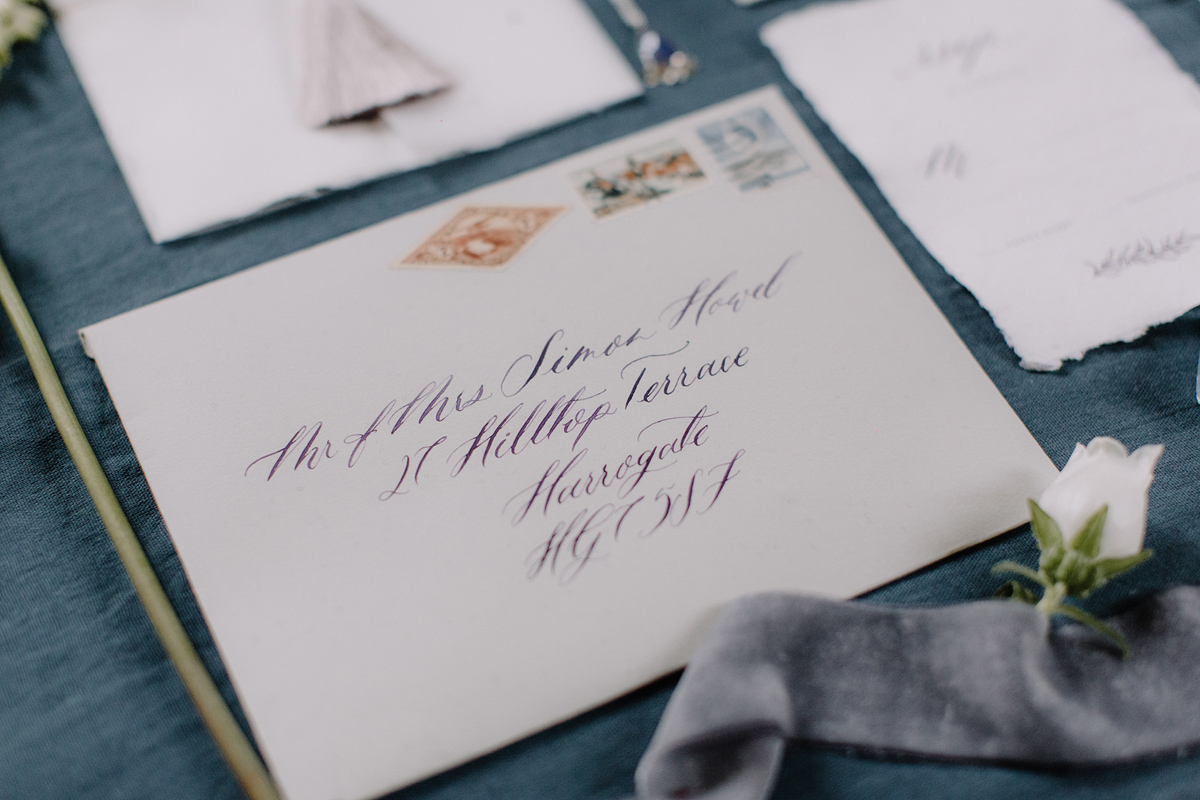 Mr & Mrs Simon Howel
27 Hilltop Terrace
Harrogate
HG7 5SF
M